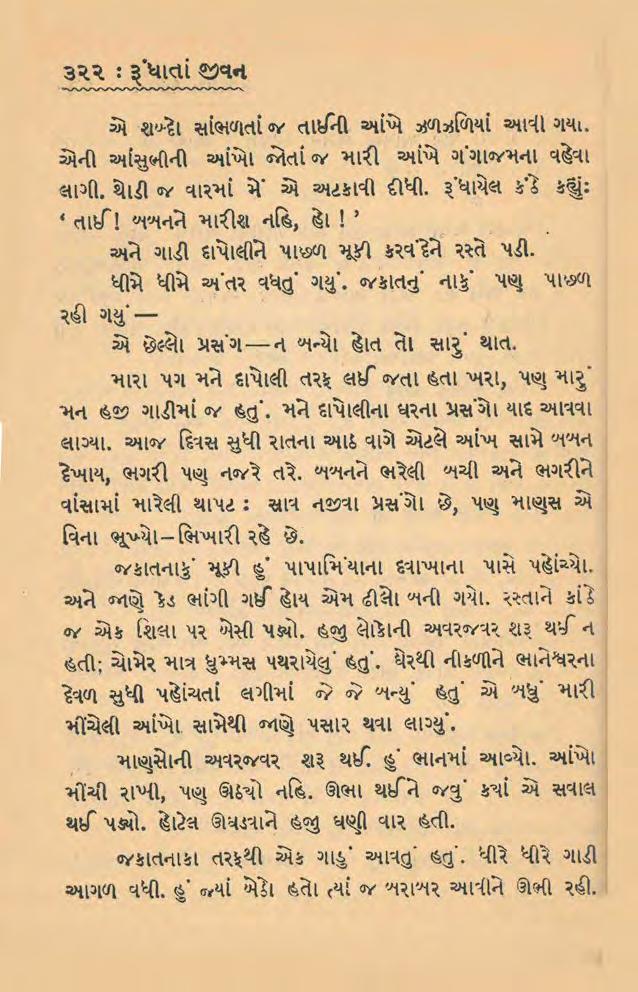 ૩૨૨ : રૂંધાતાં જીવન
એ શબ્દો સાંભળતાં જ તાઈની આંખે ઝળઝળિયાં આવી ગયા.
એની આંસુભીની આંખો જોતાં જ મારી આંખે ગંગાજમના વહેવા
લાગી. થોડી જ વારમાં મેં એ અટકાવી દીધી. રૂંધાયેલ કંઠે કહ્યું:
‘ તાઈ! બબનને મારીશ નહિ, હો ! ’
અને ગાડી દાપોલીને પાછળ મૂકી કરવંદેને રસ્તે પડી.
ધીમે ધીમે અંતર વધતું ગયું. જકાતનું નાકું પણ પાછળ
રહી ગયું —
એ છેલ્લો પ્રસંગ—ન બન્યો હોત તો સારું થાત.
મારા પગ મને દાપોલી તરફ લઈ જતા હતા ખરા, પણ મારું
મન હજી ગાડીમાં જ હતું. મને દાપોલીના ઘરના પ્રસંગો યાદ આવવા
લાગ્યા. આજ દિવસ સુધી રાતના આઠ વાગે એટલે આંખ સામે બબન
દેખાય, ભગરી પણ નજરે તરે. બબનને ભરેલી બચી અને ભગરીને
વાંસામાં મારેલી થાપટ : સાવ નજીવા પ્રસંગો છે, પણ માણુસ એ
વિના ભૂખ્યો–ભિખારી રહે છે.
જકાતનાકું મૂકી હું પાપામિંયાના દવાખાના પાસે પહોંચ્યો.
અને જાણે કેડ ભાંગી ગઈ હોય એમ ઢીલો બની ગયો. રસ્તાને કાંઠે
જ એક શિલા પર બેસી પડ્યો. હજુ લોકોની અવરજવર શરૂ થઈ ન
હતી; ચોમેર માત્ર ધુમ્મસ પથરાયેલું હતું. ઘેરથી નીકળીને ભાનેશ્વરના
દેવળ સુધી પહોંચતાં લગીમાં જે જે બન્યું હતું એ બધું મારી
મીંચેલી આંખો સામેથી જાણે પસાર થવા લાગ્યું.
માણસોની અવરજવર શરૂ થઈ. હું ભાનમાં આવ્યો. આંખો
મીંચી રાખી, પણ ઊઠયો નહિ. ઊભા થઈને જવું કયાં એ સવાલ
થઈ પડ્યો. હોટેલ ઊઘડવાને હજુ ઘણી વાર હતી.
જકાતનાકા તરફથી એક ગાડું આવતું હતું. ધીરે ધીરે ગાડી
આગળ વધી. હું જ્યાં બેઠો હતો ત્યાં જ બરાબર આવીને ઊભી રહી.